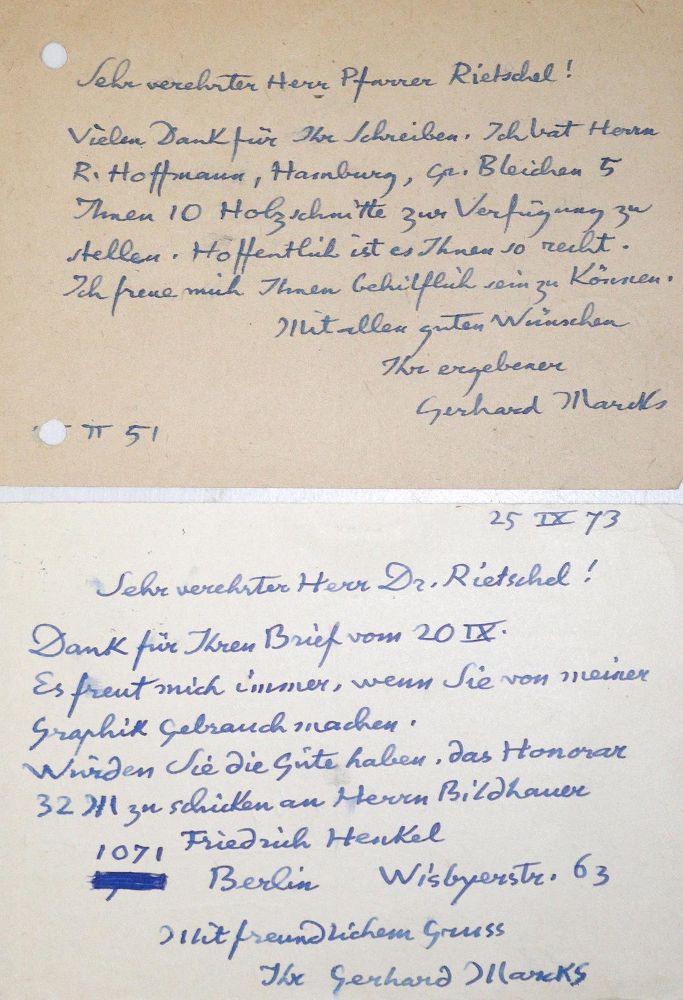 Sehr verehrter Herr Pfarrer Rietschel!
Vielen Dank für Ihr Schreiben. Ich bat Herrn
R. Hoffmann, Hamburg, Gr. Bleichen 5
Ihnen 10 Holzschnitte zur Verfügung zu
stellen. Hoffentlich ist es Ihnen so recht.
Ich freue mich Ihnen behilflich sein zu Können.
Mit allen guten Wünschen
Ihr ergebener
Gerhard Marcks
II 51
25 IX 73
Sehr verehrter Herr Dr. Rietschel!
Dank für Ihren Brief vom 20 IX.
Es freut mich immer, wenn Sie von meiner
Graphik Gebrauch machen.
Würden Sie die Güte haben, das Honorar
32 M zu schicken an Herrn Bildhauer
Friedrich Henkel
1071
Berlin Wisbyerstr. 63
Mit freundlichem Gruss
Ihr Gerhard Marcks